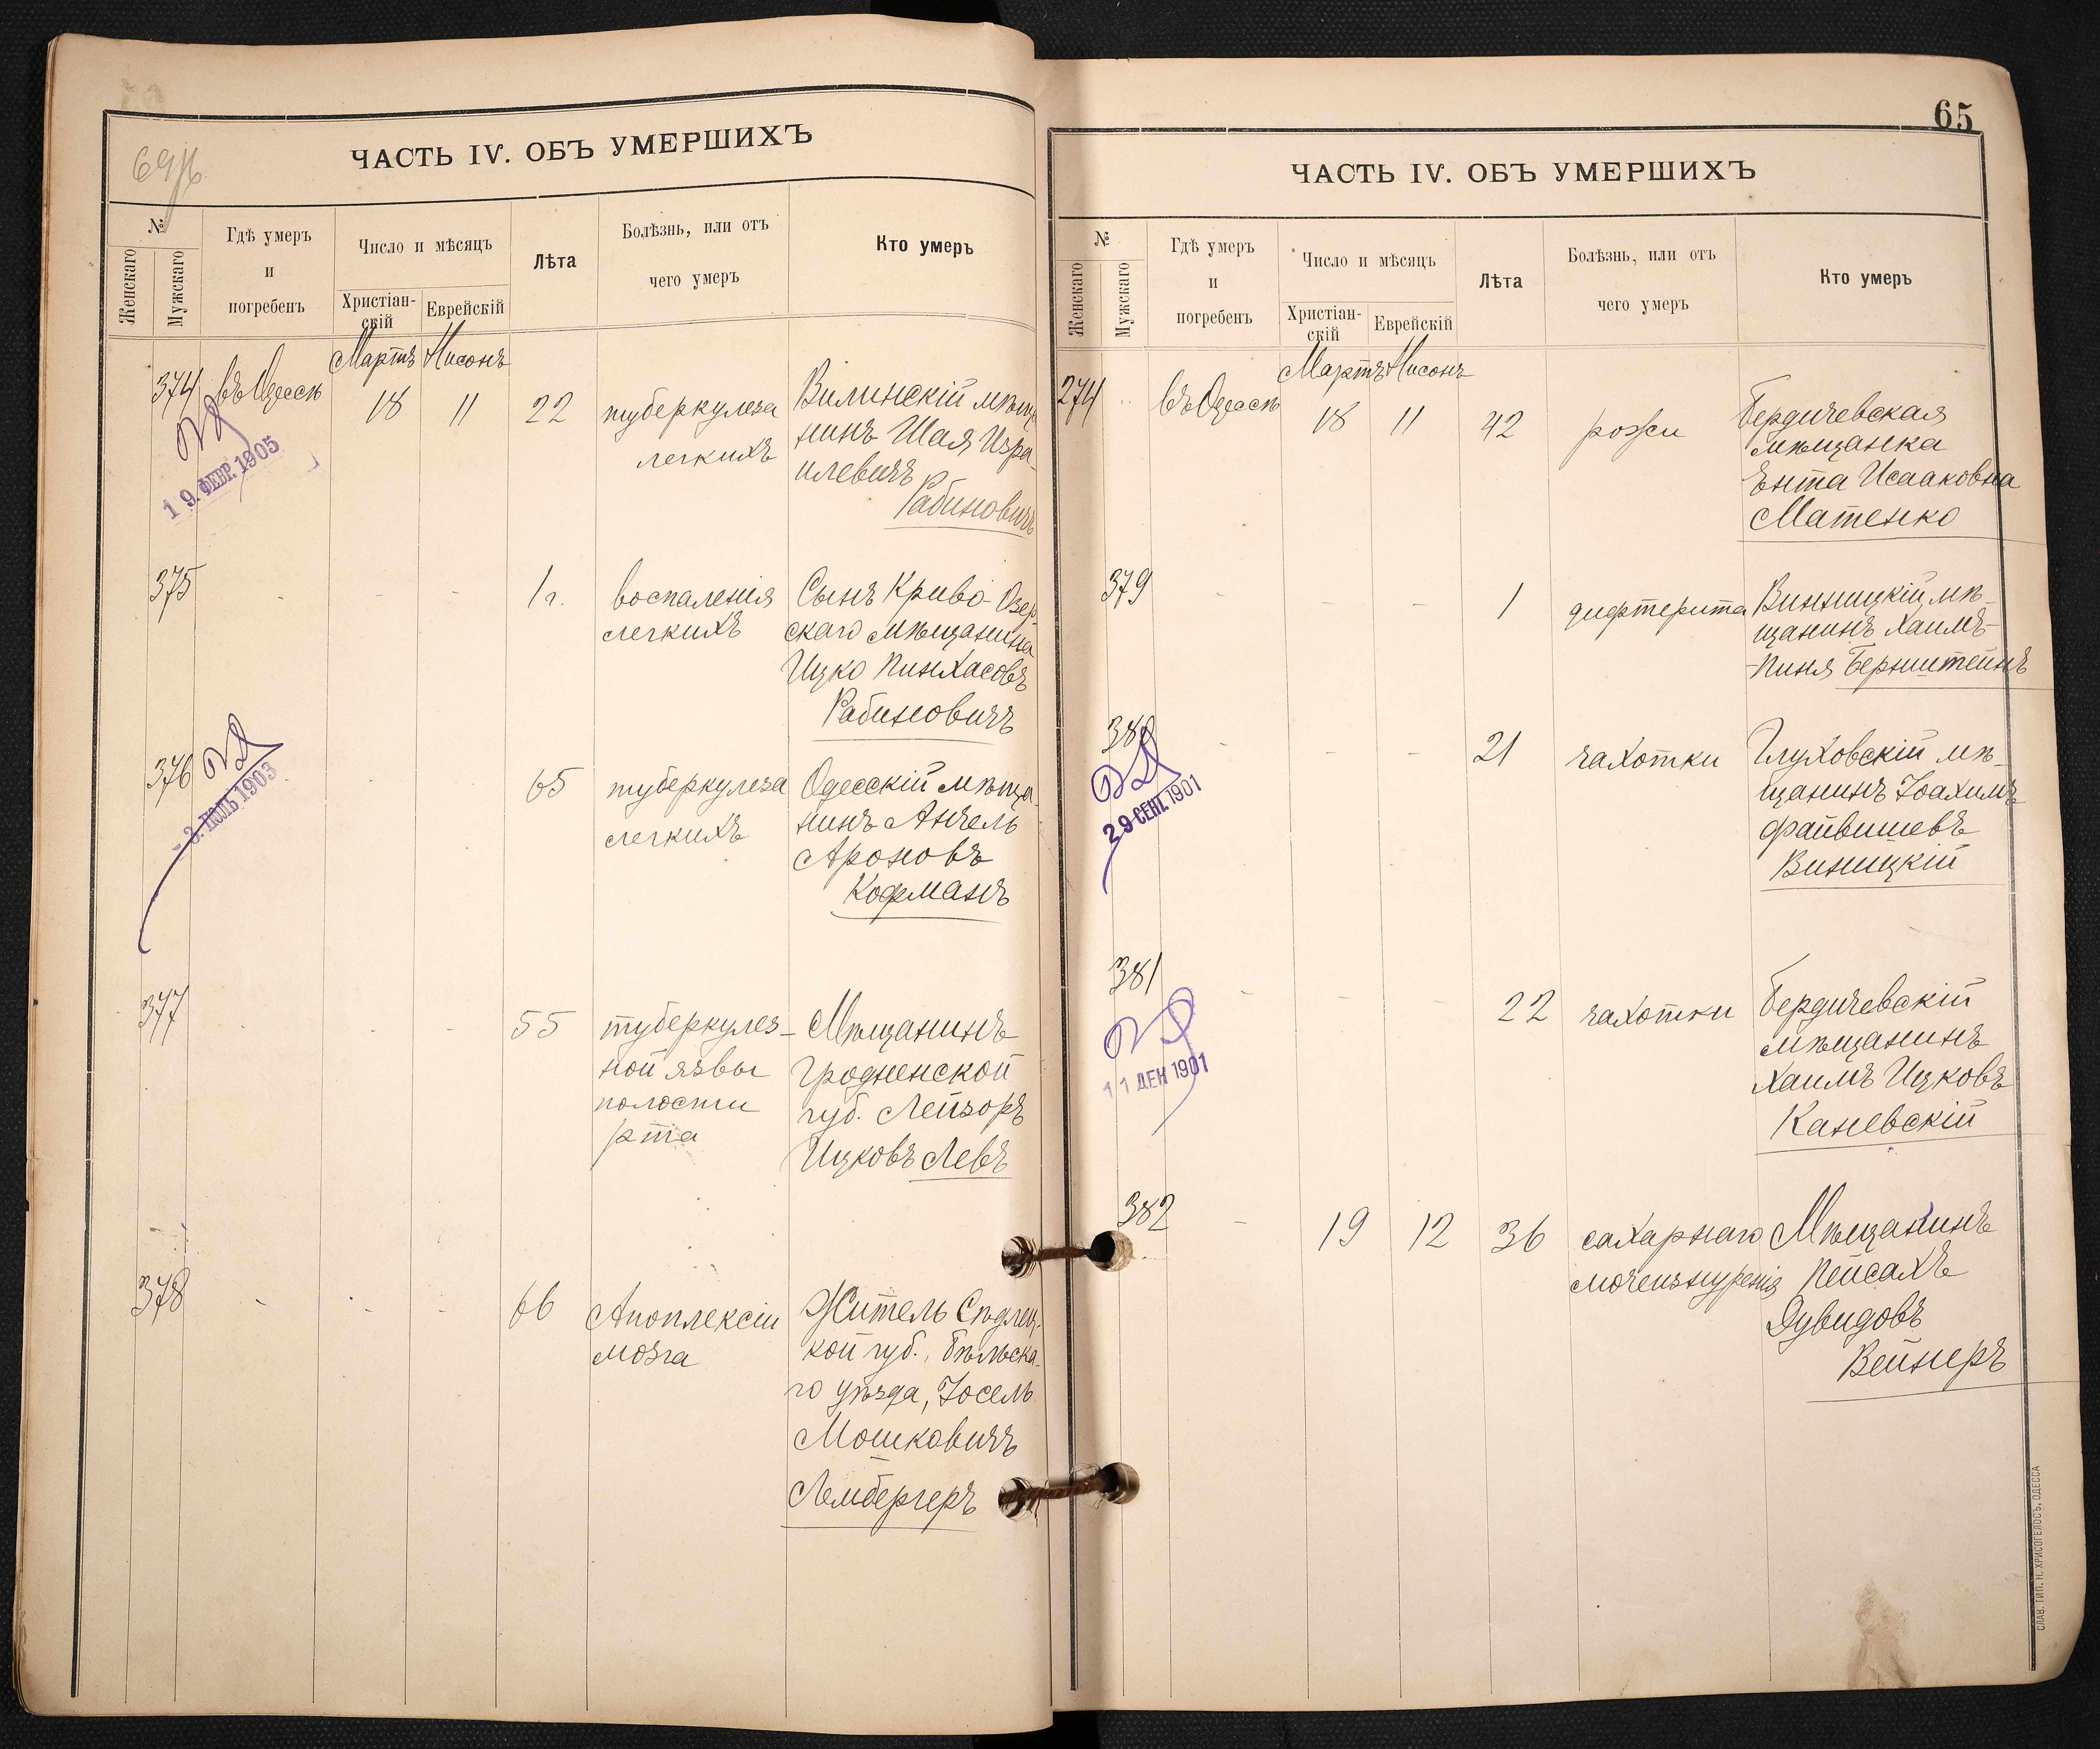 69/6
ЧАСТЬ IV. ОБЪ УМЕРШИХЪ
№
Женскаго
Мужскаго
Гдѣ умеръ
и
погребенъ
Число и мѣсяцъ
Христіан-
скій
Еврейскій
Лѣта
Болѣзнь, или отъ
чего умеръ
Кто умеръ
Мартъ Нисонъ
374 въ Одессѣ 18 11 22 туберкулеза Вилинскій мѣща
нинъ Шая Изра-
легкихъ
илевичъ
Рабиновичъ
19. ФЕВР. 1905
375 - - - 1 г. воспаленія Сынъ Криво-Озер-
легкихъ скаго мѣщанина
Ицко Пинхасовъ
Рабиновичъ
376 - - - 65 туберкулеза Одесскій мѣща-
легкихъ нинъ Анчель
Ароновъ
Кофманъ
- 3. ІЮЛЬ 1903
377 - - - 55 туберкулез- Мѣщанинъ
ной язвы Гродненской
полости губ. Лейзоръ
рта Ицковъ Левъ
378 - - - 66 Апоплексіи Житель Сѣдлец-
мозга кой губ., Бѣльска-
го уѣзда, Іосель
Мошковичъ
Лембергеръ
65
ЧАСТЬ IV. ОБЪ УМЕРШИХЪ
№
Женскаго
Мужскаго
Гдѣ умеръ
и
погребенъ
Число и мѣсяцъ
Христіан-
скій
Еврейскій
Лѣта
Болѣзнь, или отъ
чего умеръ
Кто умеръ
Мартъ Нисонъ
274 въ Одессѣ 18 11 42 рожи Бердичевская
мѣщанка
Ента Исааковна
Матенко
379 - - - 1 дифтерита Винницкій мѣ-
щанинъ Хаимъ-
-Пиня Бернштейнъ
380 - - - 21 чахотки Глуховскій мѣ-
щанинъ Іоахимъ
Файвишевъ
Виницкій
29 СЕНТ. 1901
381 - - - 22 чахотки Бердичевскій
мѣщанинъ
Хаимъ Ицковъ
Каневскій
11 ДЕК 1901
382 - 19 12 36 сахарнаго Мѣщанинъ
мочеизнуренія Пейсахъ
Дувидовъ
Вейнеръ
СЛАВ. ТИП. Н. ХРИСОГЕЛОСЪ, ОДЕССА